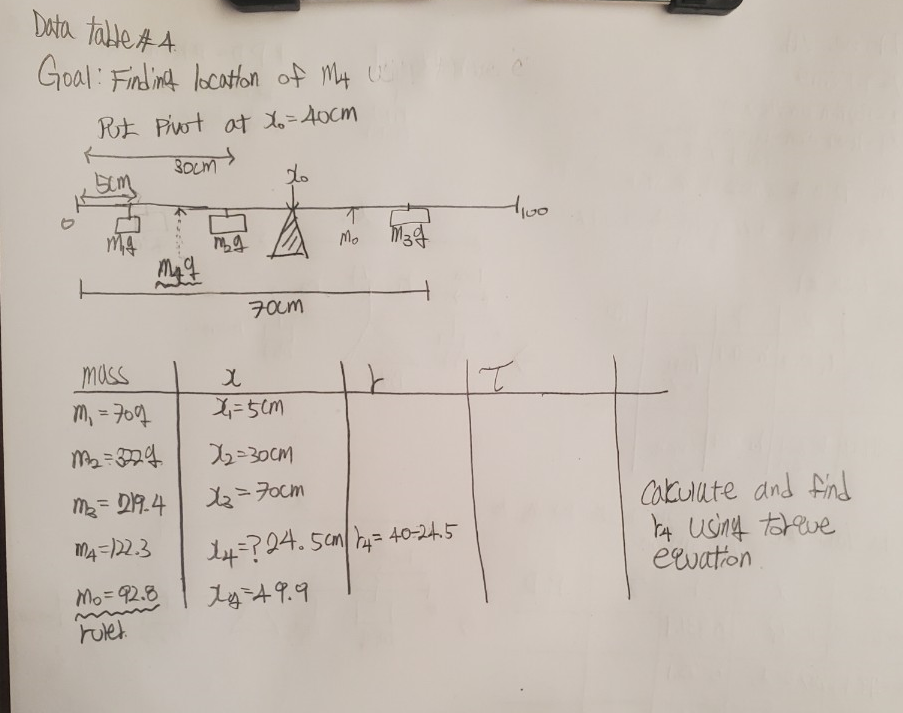 Data table #4
Goal: Finding location of m4
Put Pivot at x₀=40cm
30cm
5cm
x₀
0
100
m₁g
m₂g
m₀
m₃g
m₄g
70cm
mass x r τ
m₁=70g x₁=5cm
m₂=322g x₂=30cm
m₃=219.4 x₃=70cm
m₄=122.3 x₄=? 24.5cm r₄=40-24.5
m₀=92.8 =49.9
ruler
Calculate and find
r₄ using torque
equation